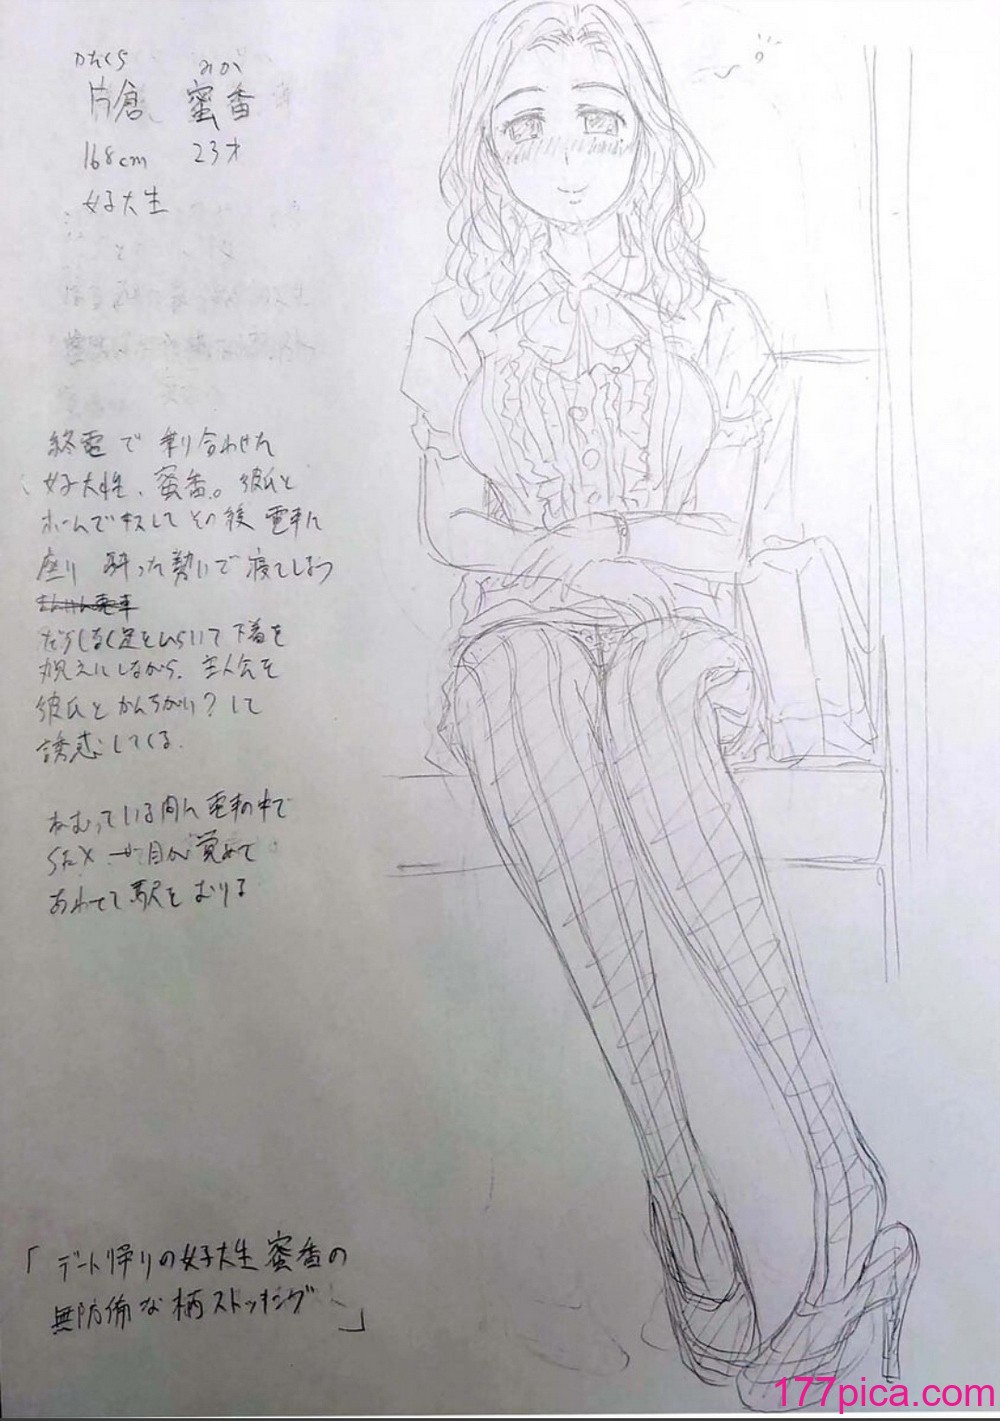 かたくら みか
片倉 蜜香
168cm 23才
女子大生
終電で乗り合わせた
女子大性、蜜香。彼氏と
ホームでキスしてその後電車に
座り 酔った勢いで寝てしまう
だらしなく足をひらいて下着を
丸見えにしながら、主人公を
彼氏とかんちがい?して
誘惑してくる。
ねむっている間に電車の中で
SEX → 目が覚めて
あわてて駅をおりる
「デート帰りの女子大生蜜香の
無防備な柄ストッキング」
177pica.com